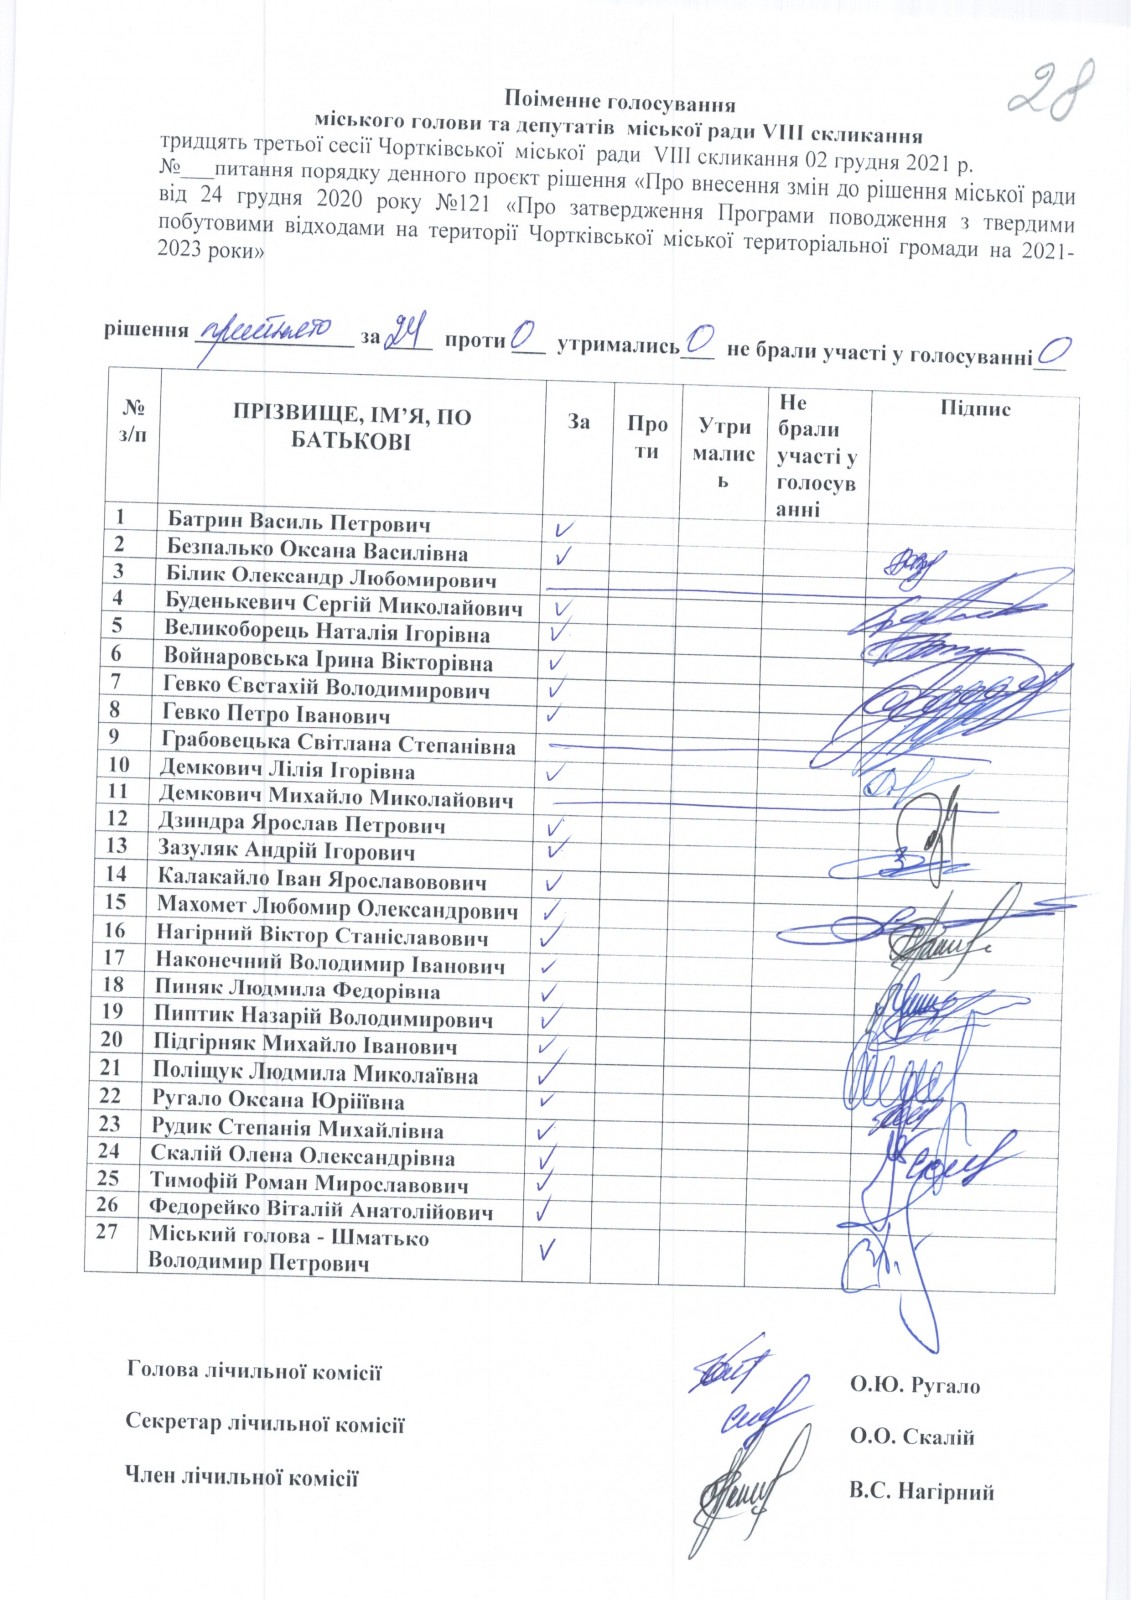 28
Поіменне голосування
міського голови та депутатів міської ради VIII скликання
тридцять третьої сесії Чортківської міської ради VIII скликання 02 грудня 2021 р.
№___питання порядку денного проєкт рішення «Про внесення змін до рішення міської ради
від 24 грудня 2020 року №121 «Про затвердження Програми поводження з твердими
побутовими відходами на території Чортківської міської територіальної громади на 2021-
2023 роки»
рішення прийнято за 24 проти 0 утримались 0 не брали участі у голосуванні 0
№ з/п ПРІЗВИЩЕ, ІМ’Я, ПО БАТЬКОВІ За Про ти Утри малис ь Не брали участі у голосув анні Підпис
1 Батрин Василь Петрович
2 Безпалько Оксана Василівна
3 Білик Олександр Любомирович
4 Буденькевич Сергій Миколайович
5 Великоборець Наталія Ігорівна
6 Войнаровська Ірина Вікторівна
7 Гевко Євстахій Володимирович
8 Гевко Петро Іванович
9 Грабовецька Світлана Степанівна
10 Демкович Лілія Ігорівна
11 Демкович Михайло Миколайович
12 Дзиндра Ярослав Петрович
13 Зазуляк Андрій Ігорович
14 Калакайло Іван Ярославовович
15 Махомет Любомир Олександрович
16 Нагірний Віктор Станіславович
17 Наконечний Володимир Іванович
18 Пиняк Людмила Федорівна
19 Пиптик Назарій Володимирович
20 Підгірняк Михайло Іванович
21 Поліщук Людмила Миколаївна
22 Ругало Оксана Юріїївна
23 Рудик Степанія Михайлівна
24 Скалій Олена Олександрівна
25 Тимофій Роман Мирославович
26 Федорейко Віталій Анатолійович
27 Міський голова - Шматько
Володимир Петрович
Голова лічильної комісії О.Ю. Ругало
Секретар лічильної комісії О.О. Скалій
Член лічильної комісії В.С. Нагірний